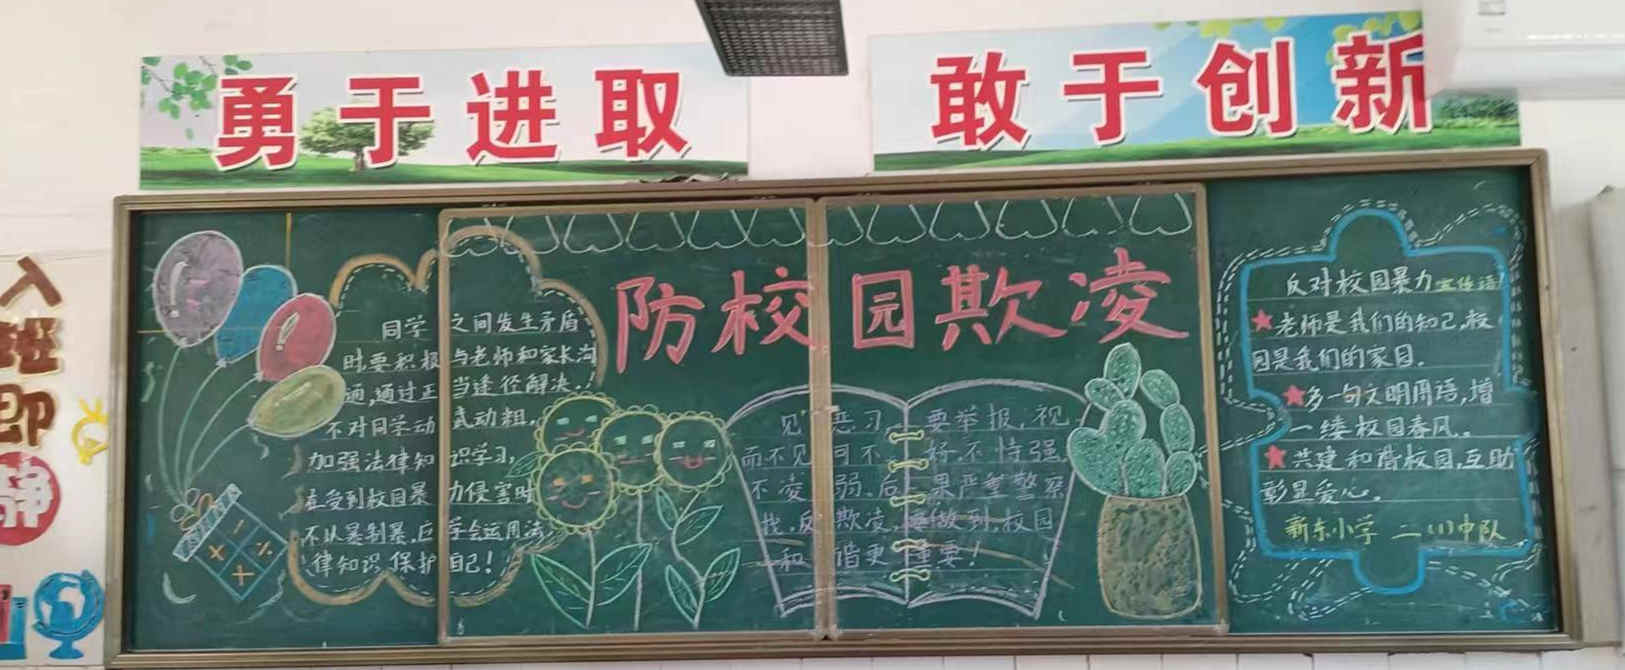 勇于进取
敢于创新
入班即静
防校园欺凌
同学之间发生矛盾
时要积极与老师和家长沟
通,通过正当途径解决.
不对同学动武动粗,
加强法律知识学习,
在受到校园暴力侵害时
不以暴制暴,应学会运用法
律知识保护自己!
见恶习要举报,视
而不见可不好,不恃强
不凌弱,后果严重警察
找,反欺凌,要做到,校园
和谐更重要!
反对校园暴力宣传语
老师是我们的知己,校
园是我们的家园.
多一句文明用语,增
一缕校园春风。
共建和谐校园,互助
彰显爱心。
新东小学 二(1)中队